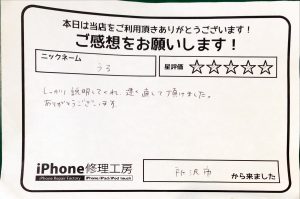 本日は当店をご利用頂きありがとうございます！
ご感想をお願いします！
ニックネーム
うろ
星評価 ☆☆☆☆☆
しっかり説明してくれ、速く直して頂けました。
ありがとうございます
iPhone修理工房
iPhone Repair Factory iPhone/iPad/iPod touch
所沢市 から来ました